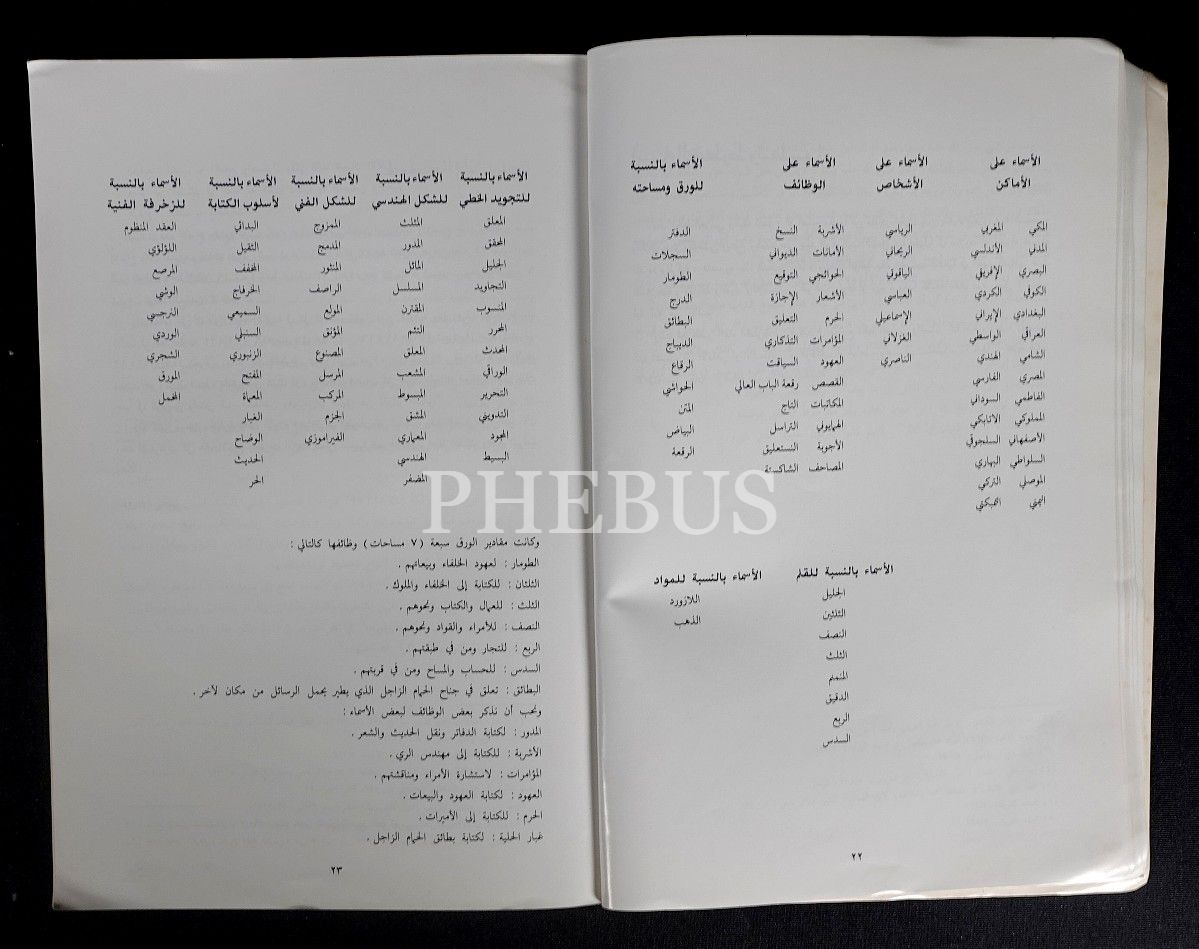 الأسماء على الأماكن
المكي المغربي
المدني الأندلسي
البصري الإفريقي
الكوفي الكردي
البغدادي الإيراني
العراقي الواسطي
الشامي الهندي
المصري الفارسي
الفاطمي السوداني
المملوكي الاتابكي
الأصفهاني السلجوقي
السلواطي البهاري
الموصلي التركي
اليمني التمبكتي
الأسماء على الأشخاص
الرياسي
الريحاني
الياقوتي
العباسي
الإسماعيلي
الغزلاني
الناصري
الأسماء على الوظائف
الأشربة النسخ
الأمانات الديواني
الحوائجي التوقيع
الأشعار الإجازة
الحرم التعليق
المؤامرات التذكاري
العهود السياقت
القصص رقعة الباب العالي
المكاتبات التاج
الهمايوني التراسل
الأجوبة النستعليق
المصاحف الشاكستة
الأسماء بالنسبة للورق ومساحته
الدفتر
السجلات
الطومار
الدرج
البطائق
الديباج
الرقاع
الحواشي
المتن
البياض
الرقعة
الأسماء بالنسبة للقلم
الجليل
الثلثين
النصف
الثلث
المنمنم
الدقيق
الربع
السدس
الأسماء بالنسبة للمواد
اللازورد
الذهب
٢٢
الأسماء بالنسبة للتجويد الخطي
المعلق
المحقق
الجليل
التجاويد
المنسوب
المحرر
المحدث
الوراقي
التحرير
التدويني
المجود
البسيط
الأسماء بالنسبة للشكل الهندسي
المثلث
المدور
المائل
المسلسل
المقترن
التئم
المعلق
المشعب
المبسوط
المشق
المعماري
الهندسي
المضفر
الأسماء بالنسبة للشكل الفني
الممزوج
المدمج
المنثور
الراصف
المولع
المؤنق
المصنوع
المرسل
المركب
الجزم
الفيراموزي
الأسماء بالنسبة لأسلوب الكتابة
البدائي
الثقيل
المخفف
الخرفاج
السميعي
السنبلي
الزنبوري
المفتح
المعماة
الغبار
الوضاح
الحديث
الحر
الأسماء بالنسبة للزخرفة الفنية
العقد المنظوم
اللؤلؤي
المرصع
الوشي
النرجسي
الوردي
الشجري
المورق
المخمل
وكانت مقادير الورق سبعة (٧ مساحات) وظائفها كالتالي :
الطومار : لعهود الخلفاء وبيعاتهم .
الثلثان : للكتابة إلى الخلفاء والملوك .
الثلث : للعمال والكتاب ونحوهم .
النصف : للأمراء والقواد ونحوهم .
الربع : للتجار ومن في طبقتهم .
السدس : للحساب والمساح ومن في قربتهم .
البطائق : تعلق في جناح الحمام الزاجل الذي يطير بحمل الرسائل من مكان لآخر .
ونحب أن نذكر بعض الوظائف لبعض الأسماء :
المدور : لكتابة الدفاتر ونقل الحديث والشعر .
الأشربة : للكتابة إلى مهندس الري .
المؤامرات : لاستشارة الأمراء ومناقشتهم .
العهود : لكتابة العهود والبيعات .
الحرم : للكتابة إلى الأميرات .
غبار الحلية : لكتابة بطائق الحمام الزاجل .
٢٣
PHEBUS